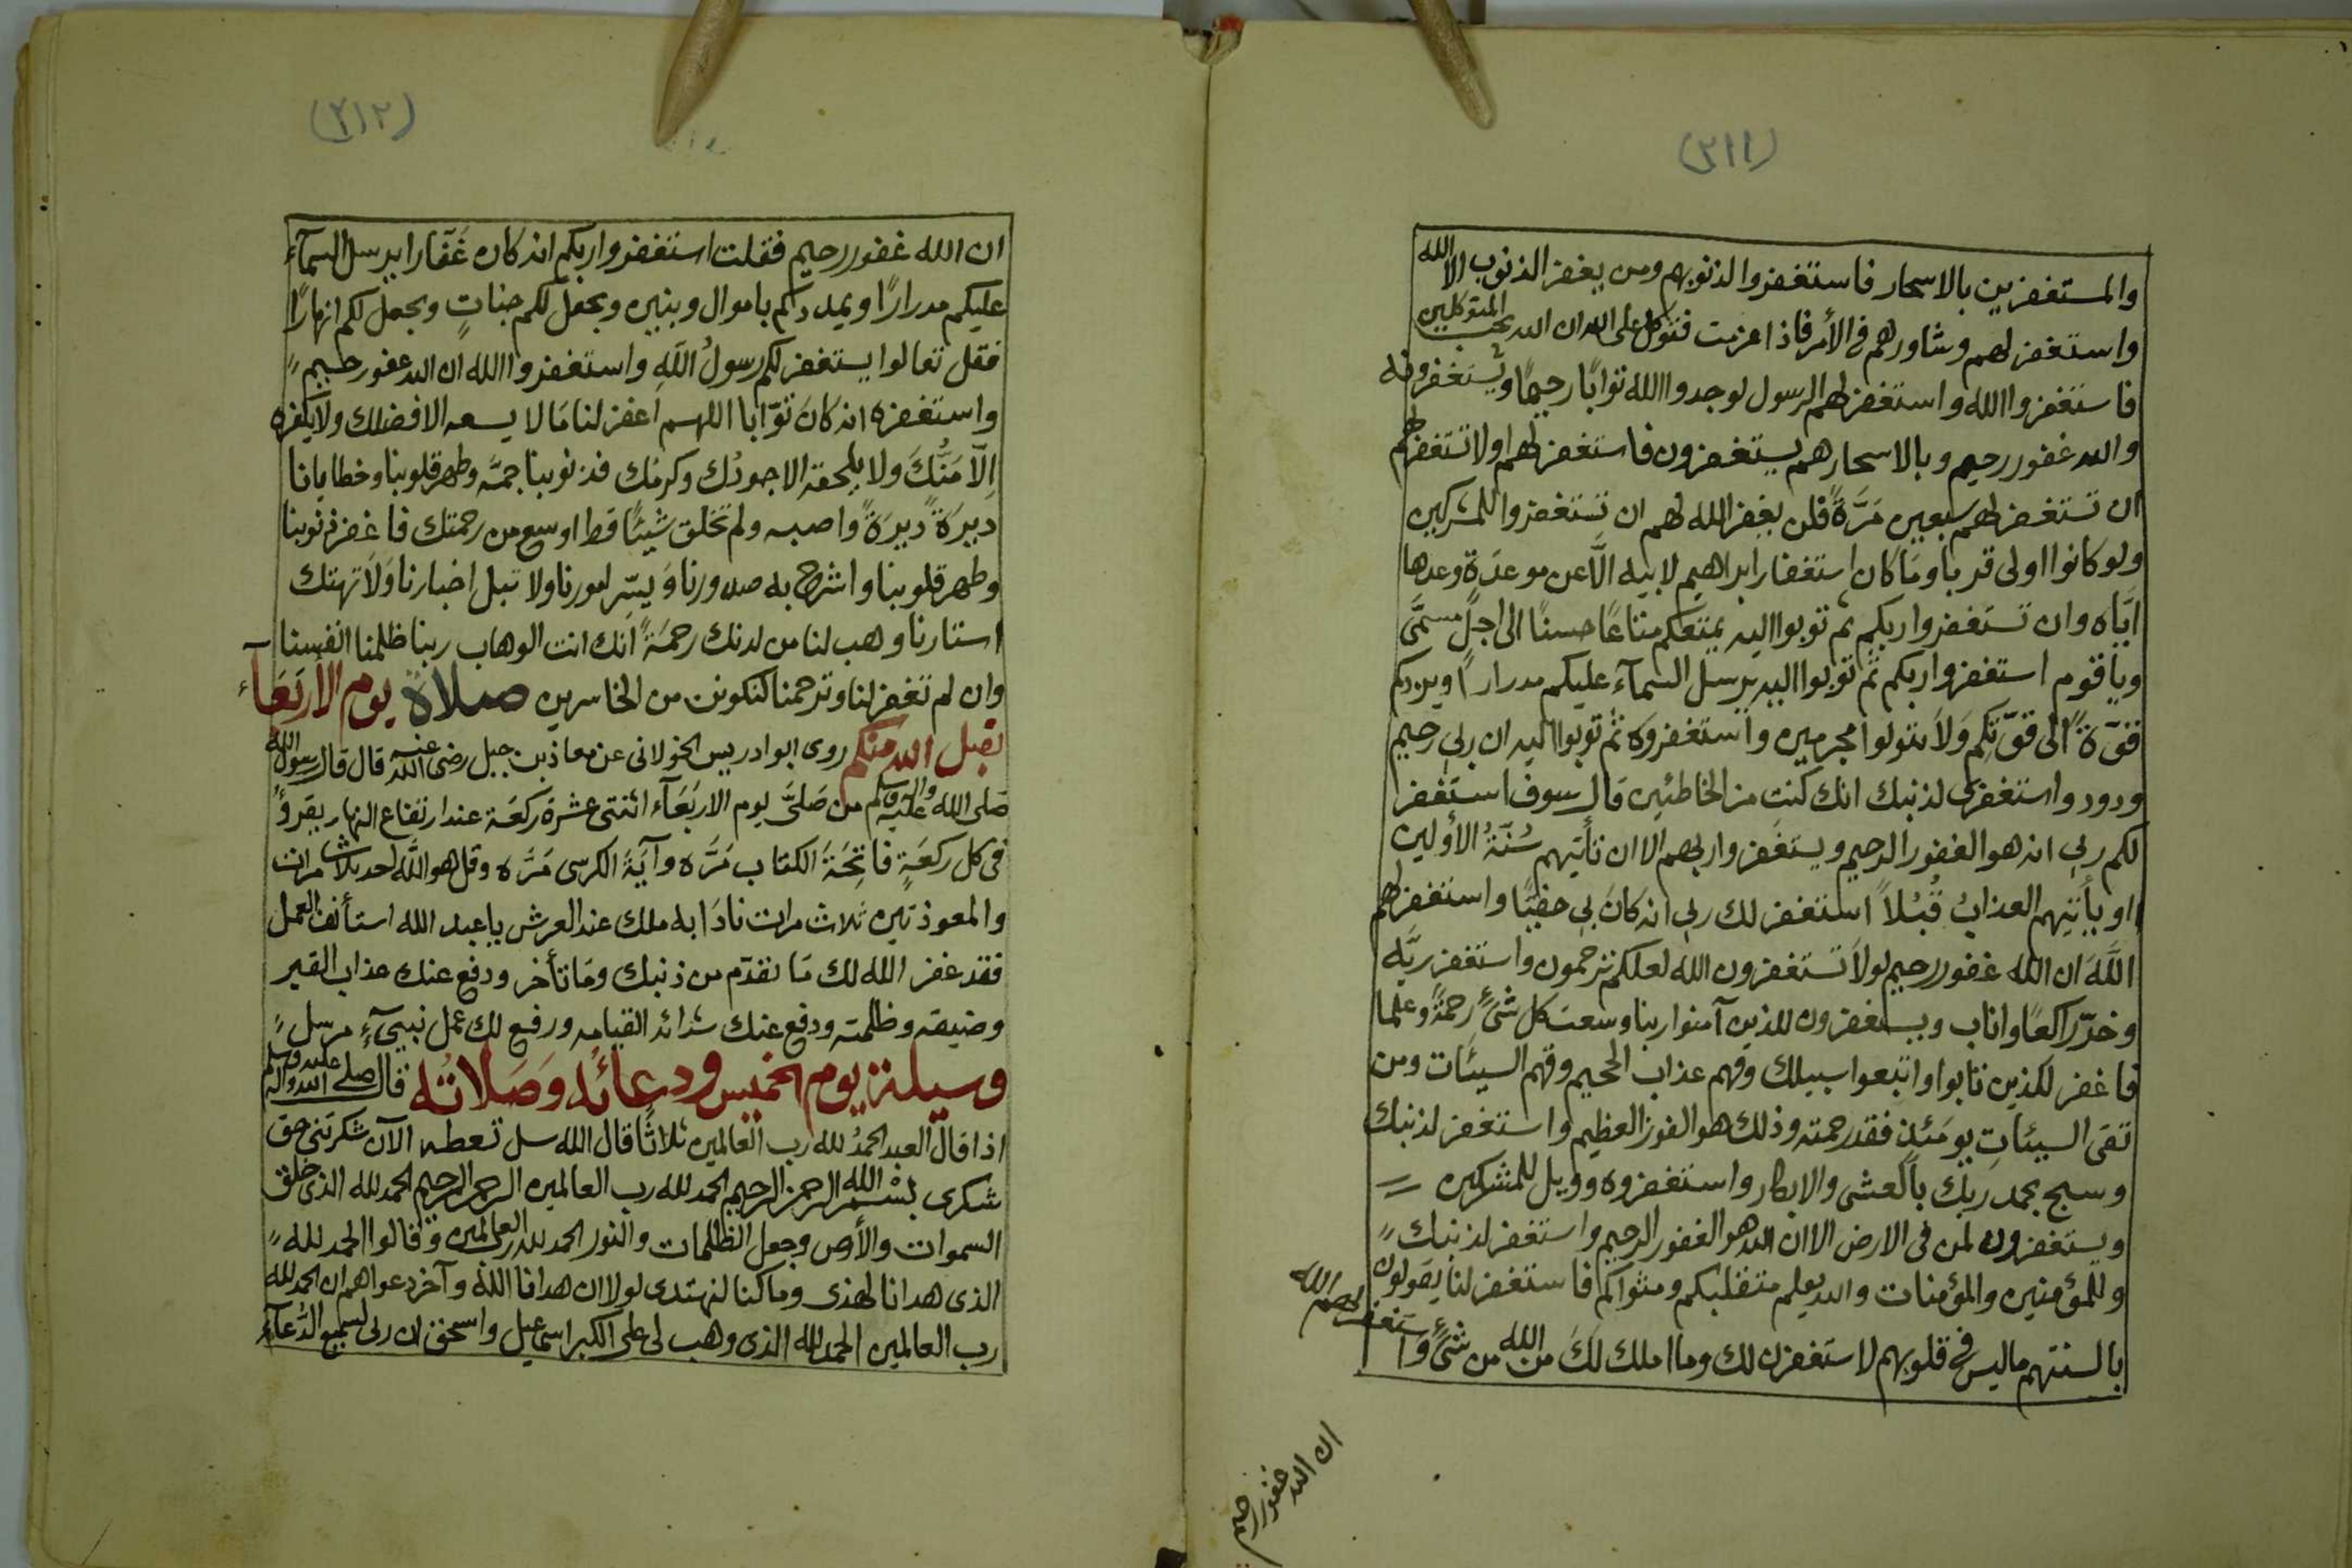 (٣١١)
والمستغفرين بالاسحار فاستغفروا لذنوبهم ومن يغفر الذنوب الا الله
واستغفر لهم وشاورهم في الأمر فاذا عزمت فتوكل على الله ان الله يحب المتوكلين
فاستغفروا الله واستغفر لهم الرسول لوجدوا الله توابًا رحيمًا ويستغفرونه
والله غفور رحيم وبالاسحار هم يستغفرون فاستغفر لهم اولا تستغفر لهم
ان تستغفر لهم سبعين مَرَّةً فلن يغفر الله لهم ان تستغفروا للمشركين
ولو كانوا اولى قربا ومَا كان استغفار ابراهيم لابيه الَّا عن موعدَة وعدها
ايَّاه وان تستغفروا ربكم ثم توبوا اليه يمتعكم متاعًا حسنًا الى اجلٍ مسمَّى
ويا قوم استغفروا ربكم ثم توبوا اليه يرسل السمآء عليكم مدرارًا ويزدكم
قوّة الى قوّتكم وَلَا تتولوا مجرمين واستغفروه ثم توبوا اليه ان ربى رحيم
ودود واستغفرى لذنبك انك كنتِ من الخاطئين قال سوف استغفر
لكم ربى انه هو الغفور الرحيم ويستغفروا ربهم الا ان تأتيهم سُنّةُ الأولين
او يأتيهم العذابُ قُبُلاً استغفر لك ربى انه كَانَ بى حفيًّا واستغفر لهم
اللهَ ان الله غفور رحيم لولا تستغفرون الله لعلكم ترحمون واستغفر ربَّه
وخرّ راكعًا واناب ويستغفرون للذين آمنوا ربنا وسعت كل شىءٍ رحمةً وعلما
فاغفر للذين تابوا واتبعوا سبيلك وقهم عذاب الجحيم وقهم السيئات ومن
تقى السيئاتِ يومَئذٍ فقد رحمته وذلك هو الفوز العظيم واستغفر لذنبك
وسبح بحمد ربك بالعشى والابكار واستغفروه وويل للمشركين
ويستغفرون لمن فى الارض الا ان الله هو الغفور الرحيم واستغفر لذنبك
وللمؤمنين والمؤمنات والله يعلم متقلبكم ومثواكم فاستغفر لنا يقولون
بالسنتهم ماليس فى قلوبهم لاستغفرن لك وما املك لكَ من الله من شىءٍ وَاستغفر لهم الله
ان الله غفور رحيم
(٣١٢)
ان الله غفور رحيم فقلت استغفروا ربكم انه كان غَفّارا يرسل السمآء
عليكم مدرارًا ويمددكم باموال وبنين ويجعل لكم جناتٍ ويجعل لكم انهارًا
فقل تعالوا يستغفر لكم رسولُ اللهِ واستغفروا الله ان الله غفور رحيم
واستغفره انه كَانَ توّابا اللهم اغفر لنا مَا لا يسعه الا فضلك ولا يكفره
اِلّا مَنُّكَ ولا يلحقه الا جودك وكرمك فذنوبنا جمَّه وطهر قلوبنا وخطايانا
دبرَة دبرَةً واصبه ولم تخلق شيئًا قط اوسع من رحمتك فاغفر ذنوبنا
وطهر قلوبنا واشرح به صدورنا وَيسّر امورنا ولا تبل اخبارنا وَلَا تهتك
استارنا وهب لنا من لدنك رحمَةً انك انت الوهاب ربنا ظلمنا انفسنا
وان لم تغفر لنا وترحمنا لنكونن من الخاسرين صلاة يوم الأربَعَآء
تقبل الله منكم روى ابو ادريس الخولانى عن معاذ بن جبل رضى الله عنه قال قال رسول الله
صَلى الله عليه وآله وسلم من صَلىَّ يوم الاربَعَآء اثنتى عشرة ركعَة عند ارتفاع النهار يقرؤ
فى كل ركعَةٍ فاتِحَةَ الكتاب مَرَّه وآيَةَ الكرسى مَرَّه وقل هو اللَّه احد ثلاث مرات
والمعوذتين ثلاث مرات نادَا به ملك عند العرش يا عبد الله استأنف العمل
فقد غفر الله لك مَا تقدّم من ذنبك ومَا تأخر ودفع عنك عذاب القبر
وضيقه وظلمته ودفع عنك شدائد القيامه ورفع لك عمل نبىٍّ مرسل
وسيلة يوم الخميس ودعائه وَصَلاتُه قال صلى الله عليه وآله وسلم
اذا قال العبد الحمدُ لله رب العالمين ثلاثًا قال الله سل تعطه الآن شكرتنى حق
شكرى بسْم الله الرحمن الرحيم الحمد لله رب العالمين الرحمن الرحيم الحمد لله الذى خلق
السموات والأرض وجعل الظلمات والنور الحمد لله رب العالمين وقالوا الحمد لله
الذى هدانا لهذى وما كنا لنهتدى لولا ان هدانا الله وآخر دعواهم ان الحمد لله
رب العالمين الحمد لله الذى وهب لى على الكبر اسماعيل واسحق ان ربى لسميع الدُّعآء